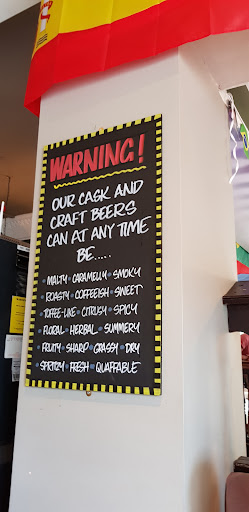 WARNING!
OUR CASK AND
CRAFT BEERS
CAN AT ANY TIME
BE.....
• MALTY • CARAMELLY • SMOKY
• ROASTY • COFFEEISH • SWEET
• TOFFEE-LIKE • CITRUSY • SPICY
• FLORAL • HERBAL • SUMMERY
• FRUITY • SHARP • GRASSY • DRY
• SPRITZY • FRESH • QUAFFABLE